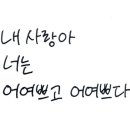 내 사랑아
너는
어여쁘고 어여쁘다